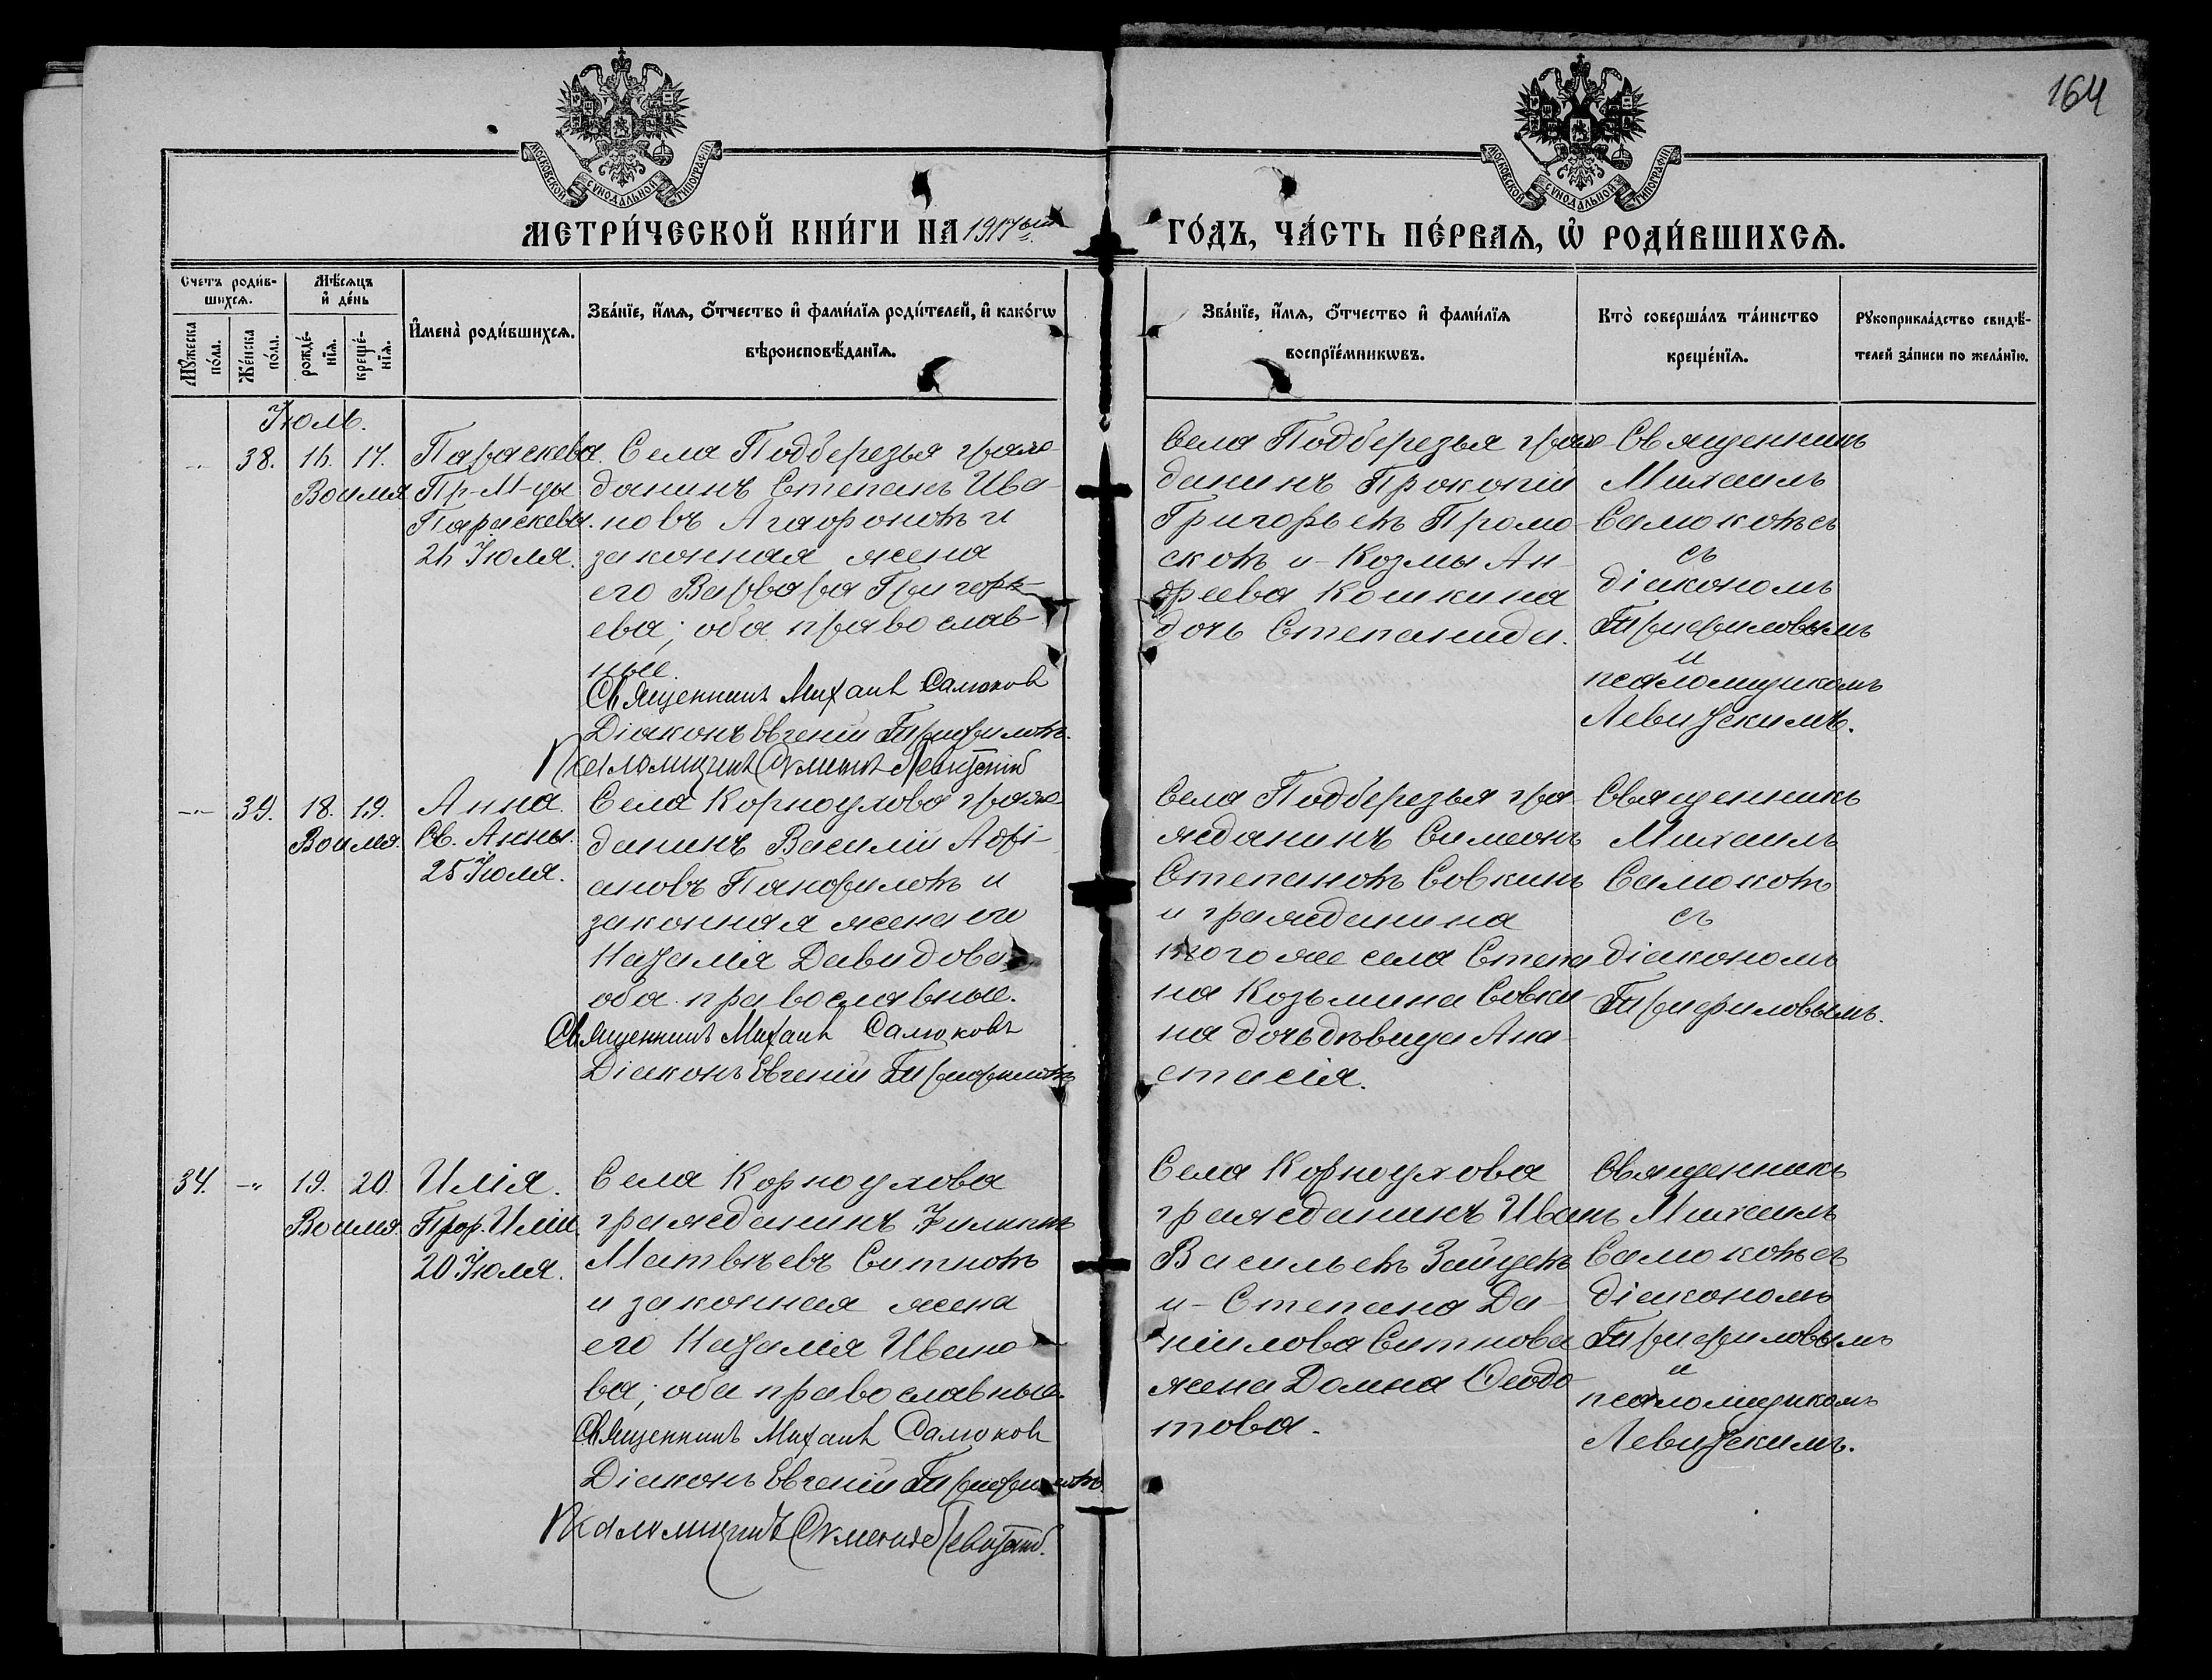 164
МОСКОВСКОЙ СУНОДАЛЬНОЙ ТИПОГРАФІИ
МОСКОВСКОЙ СУНОДАЛЬНОЙ ТИПОГРАФІИ
МЕТРИ́ЧЕСКОЙ КНИ́ГИ НА 1917ый ГО́ДЪ, ЧА́СТЬ ПЕ́РВАѦ, Ѡ҆ РОДИ́ВШИХСѦ.
Счетъ роди́в-
шихсѧ.
Мꙋ́жеска
по́ла.
Же́нска
по́ла.
Мѣ́сѧцъ
и҆ де́нь
рожде́-
нїѧ.
креще́-
нїѧ.
И҆мена̀ роди́вшихсѧ.
Зва́нїе, и҆́мѧ, ѻ҆́тчество и҆ фами́лїѧ роди́телей, и҆ како́гѡ
вѣроисповѣ́данїѧ.
Зва́нїе, и҆́мѧ, ѻ҆́тчество и҆ фами́лїѧ
воспрїе́мникѡвъ.
Кто̀ соверша́лъ та́инство
креще́нїѧ.
Рꙋкоприкла́дство свидѣ́-
телей за́писи по жела́нїю.
Іюль.
-"- 38. 16. 17.
Во имя
Параскева.
Пр-М-цы
Параскевы.
26 Іюля.
Села Подберезья граж-
данинъ Степанъ Ива-
новъ Агафоновъ и
законная жена
его Варвара Григорь-
ева; оба православ-
ные.
Священникъ Михаил Самюков
Діаконъ Евгеній Трифиловъ.
Псаломщикъ Левитскій
Села Подберезья граж-
данинъ Прокопій
Григорьевъ
и Козмы Ан-
дреева Кошкина
дочь Степанида.
Священникъ
Михаилъ
Самюковъ съ
съ
діакономъ
Трифиловымъ
и
псаломщикомъ
Левитскимъ.
-"- 39. 18. 19.
Во имя.
Анна.
Св. Анны.
25 Іюля.
Села Корноухова граж-
данинъ Василій Адрі-
ановъ Панфиловъ и
законная жена его
Наталія Давидова
оба православные.
Священникъ Михаил Самюковъ
Діаконъ Евгеній Трифиловъ
Села Подберезья гра-
жданинъ Симеонъ
Степановъ Совкинъ
и гражданина
того же села Степа
на Козьмина Совки-
на дочь дѣвица Ана-
стасія.
Священникъ
Михаилъ
Самюковъ
съ
діакономъ
Трифиловымъ.
34. -"- 19. 20.
Во имя.
Илія.
Прор. Иліи.
20 Іюля.
Села Корноухова
гражданинъ Филиппъ
Матвѣевъ Ситновъ
и законная жена
его Наталія Ивано-
ва; оба православные.
Священникъ Михаил Самюков
Діаконъ Евгеній Трифиловъ
Псаломщикъ Левитскій.
Села Корноухова
гражданинъ Иванъ
Васильевъ Зайцевъ
и - Степана Да-
ніилова Ситнова
жена Домна Ѳедо-
това.
Священникъ
Михаилъ
Самюковъ съ
діакономъ
Трифиловымъ
и
псаломщикомъ
Левитскимъ.